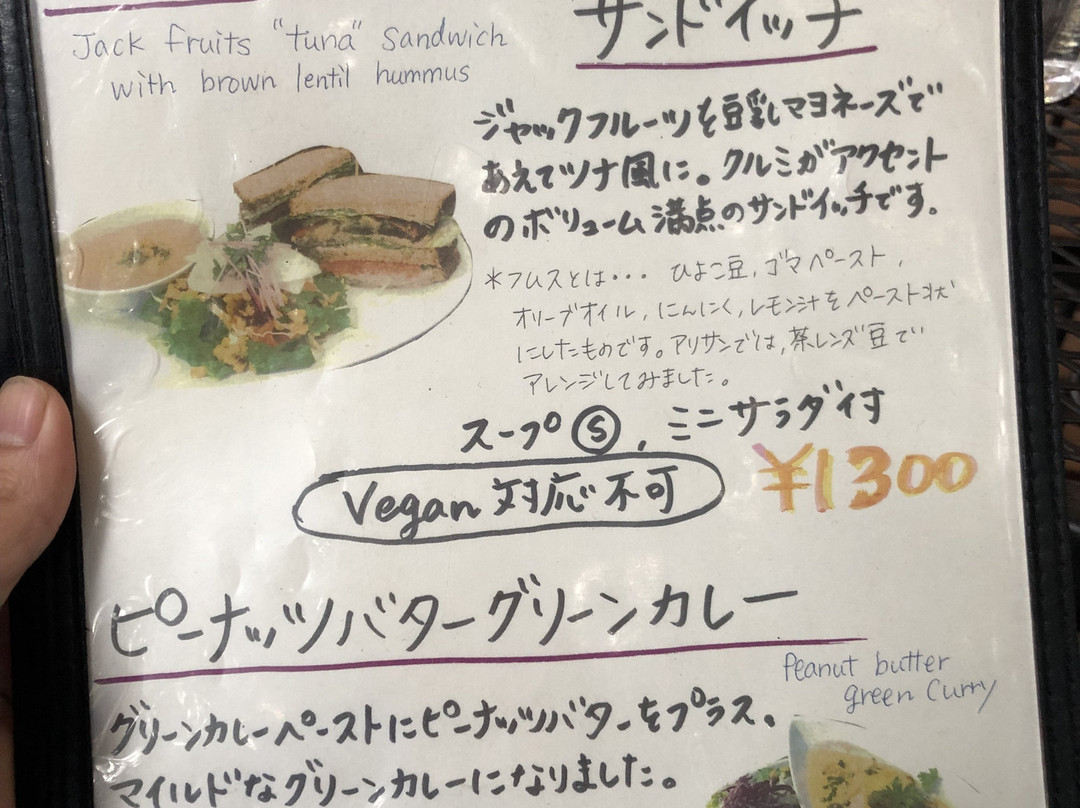 サンドイッチ
Jack fruits "tuna" Sandwich
with brown lentil hummus
ジャックフルーツを豆乳マヨネーズで
あえてツナ風に。クルミがアクセント
のボリューム満点のサンドイッチです。
*フムスとは・・・ ひよこ豆,ゴマペースト,
オリーブオイル,にんにく,レモン汁をペースト状
にしたものです。アリサンでは,茶レンズ豆で
アレンジしてみました。
スープⓈ,ミニサラダ付
Vegan 対応不可
¥1300
ピーナッツバターグリーンカレー
Peanut butter
green Curry
グリーンカレーペーストにピーナッツバターをプラス。
マイルドなグリーンカレーになりました。